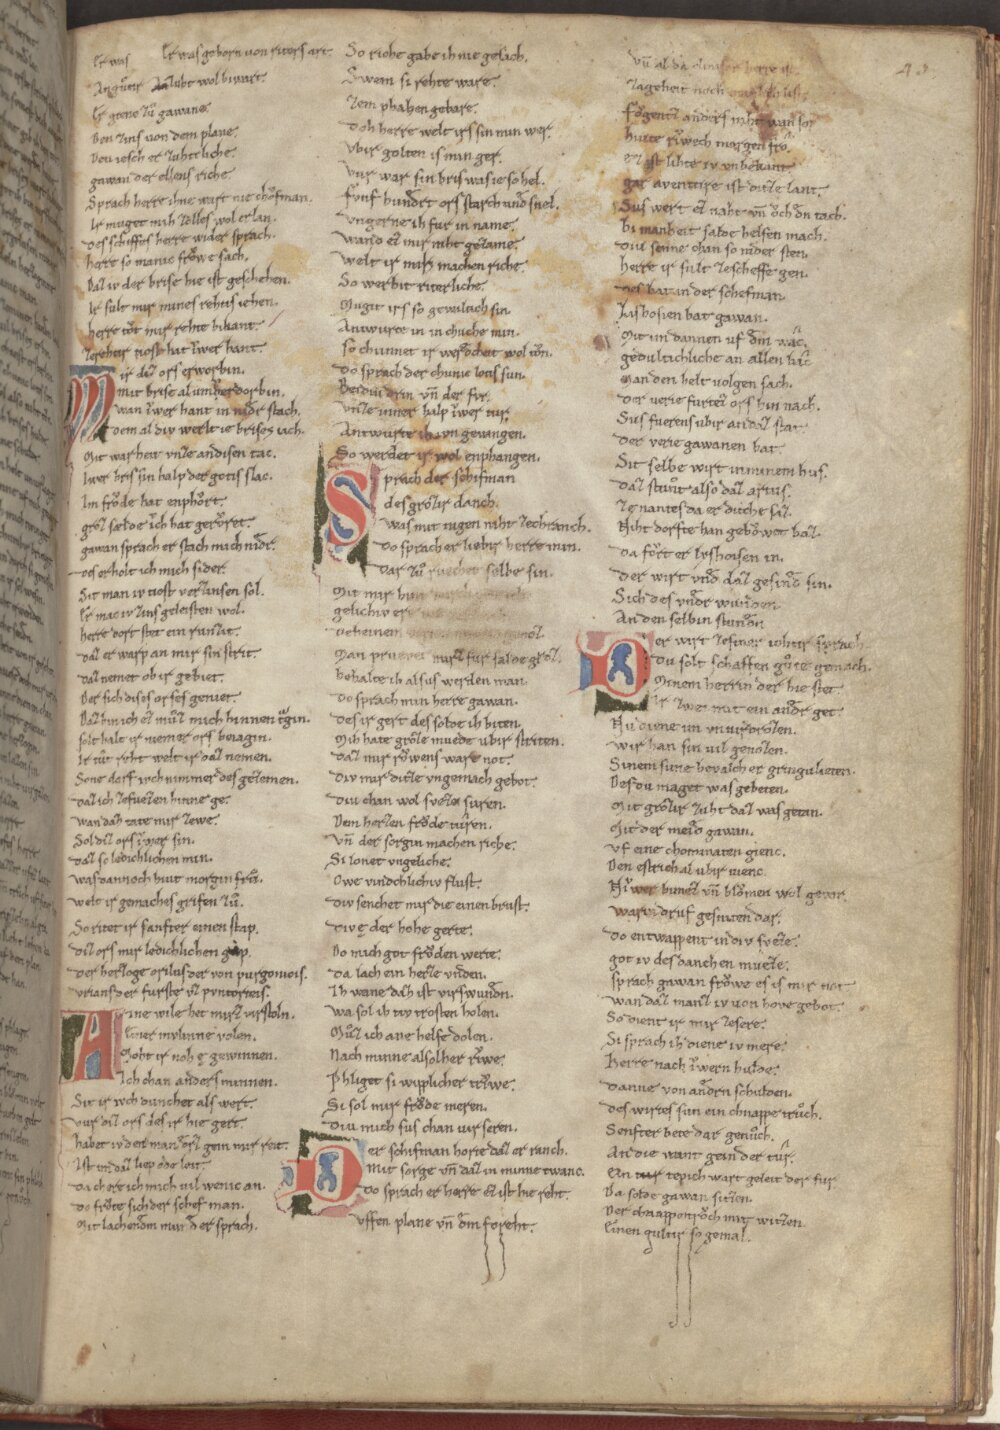 Er was Er was geborn von riters art
Er gienc zů gawane.
Den zins von dem plane.
Den iesch er zuhtecliche.
gawan der ellens riche
Sprach herre ihne wart nie chǒfman.
Ir muget mih zolles wol erlan.
Des schiffes herre wider sprach.
herre so manic frǒwe sach.
Daz iv der brise hie ist geschehen.
Ir sult mir mines rehtis iehen.
herre tǒt mir rehte bikant.
zerehter tiost hat iwer hant.
Mir diz ors erworbin.
mit brise al unverdorbin.
wan iwer hant in nider stach.
dem al div werlt ie brises iach.
Mit warheit vnze an disen tac.
Iwer bris sin halp der gotis slac.
Im frǒde hat enphǒrt.
groz sælde ivch hat gerǒret.
gawan sprach er stach mich nider.
des erholt ich mich sider.
Sit man iv tiost verzinsen sol.
Er mac iv zins geleisten wol.
herre dort stet ein runzit.
daz er warp an mir sin strit.
daz nemet ob ir gebiet.
Der sich disos orses geniet.
Daz bin ich ez mǔz mich hinnen tragin.
solt halt ir niemer ors beiagin.
Ir iůt reht welt ir daz nemen.
Sone dorf ivch nimmer des gezemen.
daz ich zefuezen hinne ge.
wan daz tæte mir zewe.
Sol diz ors iwer sin.
daz so ledichlichen min.
was dannoch hiut morgin frů.
welt ir gemaches grifen zů.
So ritet ir sanfter einen stap.
diz ors mir ledichlichen gap.
der herzoge orilus der von purgonois.
vrians der furste vz pvntorteis.
Eine wile het mirz virstoln.
Einer mvlinne volen.
Mǒht ir noh e gewinnen.
Ich chan anders minnen.
Sit ir ivch dunchet als wert.
vur diz ors des ir hie gert.
habet iv den man derz gein mir reit.
Ist im daz liep ode leit.
da chere ich mich vil wenic an.
do frǒte sich der schef man.
Mit lachendem munde er sprach.
So riche gabe ih nie gesach.
Swem si rehte wære.
zem phahen gebære.
doh herre welt irs sin min wer.
vbir golten is min ger.
vur war sin bris was ie so hel.
funf hundert ors starch vnd snel.
vngerne ih fur in næme.
wand ez mir niht gezæme.
welt ir mich machen riche.
So werbit riterliche.
Mugit irs so gewaltich sin
Antwurte in in chuche min.
so chunnet ir werdecheit wol tǒn.
do sprach der chunic lotis sun.
Beidiu drin vnd der fur.
vnze inner halp iwer tur.
Antwurte ih ivn gevangen.
So werdet ir wol enphangen.
Sprach der schifman
des grozir danch.
was mit nigen niht ze chranch.
do sprach er liebir herre min.
dar zů ruechet selbe sin.
Mit mir hint
gelichiv ere
deheinem
Man pruevet mirz fur sælde groz.
behalte ih alsus werden man.
do sprach min herre gawan.
des ir gert des solde ih biten.
Mih hat groze muede vbir striten.
daz mir rǒwens wære not.
div mir dicke vngemach gebot.
diu chan wol sueze suren.
Dem herzen frǒde tǔren.
vn der sorgin machen riche.
Si lonet vngeliche.
Owe vindchlichiv flust.
div senchet mir die einen brust.
div e der hohe gerte.
Do mich got frǒden werte.
da lach ein herze vnden.
Ih wæne daz ist virswundn.
wa sol ih trv trosten holen.
Mǔz ich ane helfe dolen.
Nach minne alsolher rǐwe.
Phliget si wiplicher trǐwe.
Si sol mir frǒde meren.
Diu mich sus chan vir seren.
Der schifman horte daz er ranch.
Mit sorge vn daz in minne twanc.
do sprach er herre ez ist hie reht.
vffen plane vn dem foreht.
vn al da
Tageheit noch
fǒgentz anders niht wan so
hiute riwech morgen fro.
ez ist lihte iv vnbekant
gar aventiure ist ditze lant.
Sus wert ez naht vn ǒch den tach.
bi manheit sælde helfen mach.
Diu sunne chan so nider sten.
herre ir sult ze scheffe gen.
des bat in der schefman.
Lishoien bat gawan.
Mit im dannen uf den wac.
gedultichliche an allen bac
Man den helt volgen sach.
der verie furtez ors hin nach.
Sus fueren si vbir an daz stat
der verie gawanen bat.
Sit selbe wirt in minem hus.
daz stuont also daz artus.
ze nantes da er dicche saz.
Niht dorfte han gebǒwet baz.
Da fǒrt er Lyshoisen in.
der wirt vnd daz gesinde sin.
Sich des vnder wunden
An den selbin stunden
Der wirt ze siner tohter sprach.
du solt schaffen gǒte gemach.
Minem herrin der hie stet
Ir zwei mit ein ander get.
Nu diene im vnvirdrozen.
wir han sin vil genozen.
Sinem sune bevalch er gringulieten.
Des diu maget was gebeten.
Mit grozir zuht daz was getan.
Mit der meid gawan.
vf eine chominaten gienc.
Den estrich al vbir vienc.
Niwer binez vn blǒmen wol gevar.
warn druf gesniten dar.
do entwappent in div sueze.
got iv des danchen mueze.
sprach gawan frǒwe es is mir not
wan daz manz iv von hove gebot.
So dient ir mir zesere.
Si sprach ih diene iv mere.
Herre nach iwern hulde.
danne von andern schulden.
des wirtes sun ein chnappe truoch.
Senfter bete dar genuoch.
An die want gein der tur.
Ein tepich wart geleit der fur
Da solde gawan sitzen.
Der chnappe trǒch mit witzen
Einen gultir so gemal.